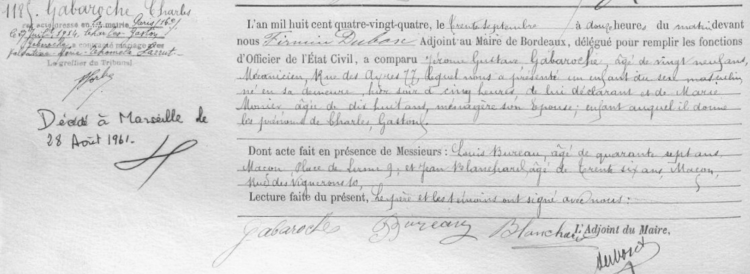 1185. Gabaroche, Charles
la mairie Paris (16e)
Juillet 1954. Charles Gaston
Gabaroche a contracté mariage avec
Le greffier du Tribunal
Décédé à Marseille le
28 Août 1961.
L'an mil huit cent quatre-vingt-quatre, le trente septembre à onze heures du matin devant
nous Firmin Dubosc Adjoint au Maire de Bordeaux, délégué pour remplir les fonctions
d'Officier de l'État Civil, a comparu Gustave Gabaroche, âgé de vingt neuf ans,
Mécanicien, Rue des Ayres 77, lequel nous a présenté un enfant du sexe masculin
né en sa demeure, hier soir à cinq heures, de lui déclarant et de Marie
âgée de dix huit ans, ménagère son Epouse; enfant auquel il donne
les prénoms de Charles, Gaston,
Dont acte fait en présence de Messieurs : Louis Bureau, âgé de quarante sept ans
Maçon, Place de 9, et Jean Blanchard, âgé de trente six ans, Maçon,
Rue des Vignerons 10,
Lecture faite du présent, Le père et les témoins ont signé avec nous.
Gabaroche Bureau Blanchard L'Adjoint du Maire.
Dubosc